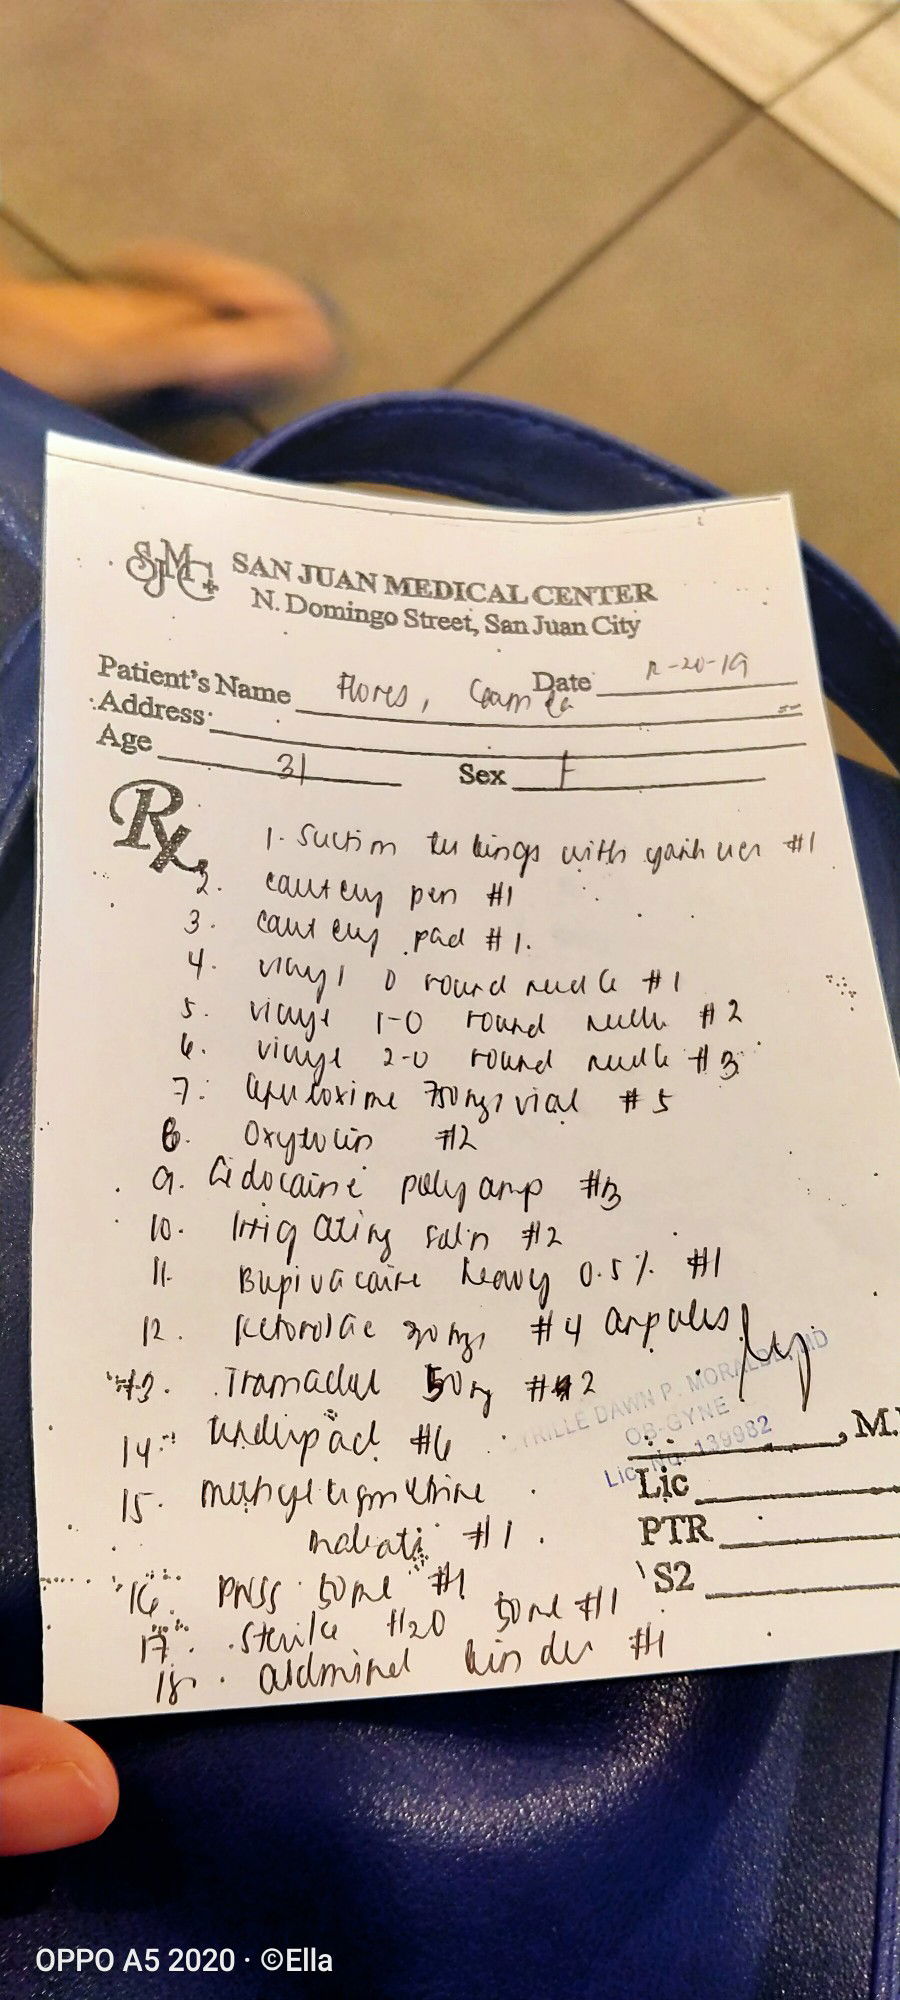 SJMC
SAN JUAN MEDICAL CENTER
N. Domingo Street, San Juan City
Patient's Name Flores, Date 12-20-19
Address
Age 31 Sex F
Rx
1. Suction tubings with yankuer #1
2. cautery pen #1
3. cautery pad #1.
4. vicryl 0 round needle #1
5. vicryl 1-0 round needle #2
6. vicryl 2-0 round needle #3
7. Cefuroxime 750mgs vial #5
8. Oxytocin #2
9. Lidocaine polyamp #3
10. Irrigating saline #2
11. Bupivacaine heavy 0.5% #1
12. Ketorolac 30mgs #4 ampules
13. Tramadol 50mg #2
14. Underpad #6
15. methylergometrine
maleate #1.
16. PNSS 50ml #1
17. Sterile H2O 50ml #1
18. abdominal binder #1
CYRILLE DAWN P. MORALDE, MD
OB-GYNE
Lic. No. 139982
, M.
Lic
PTR
S2
OPPO A5 2020 · ©Ella